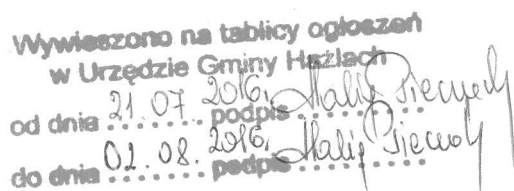 Wywieszono na tablicy ogłoszeń
w Urzędzie Gminy Hażlach
od dnia 21.07.2016, podpis
do dnia 02.08.2016, podpis